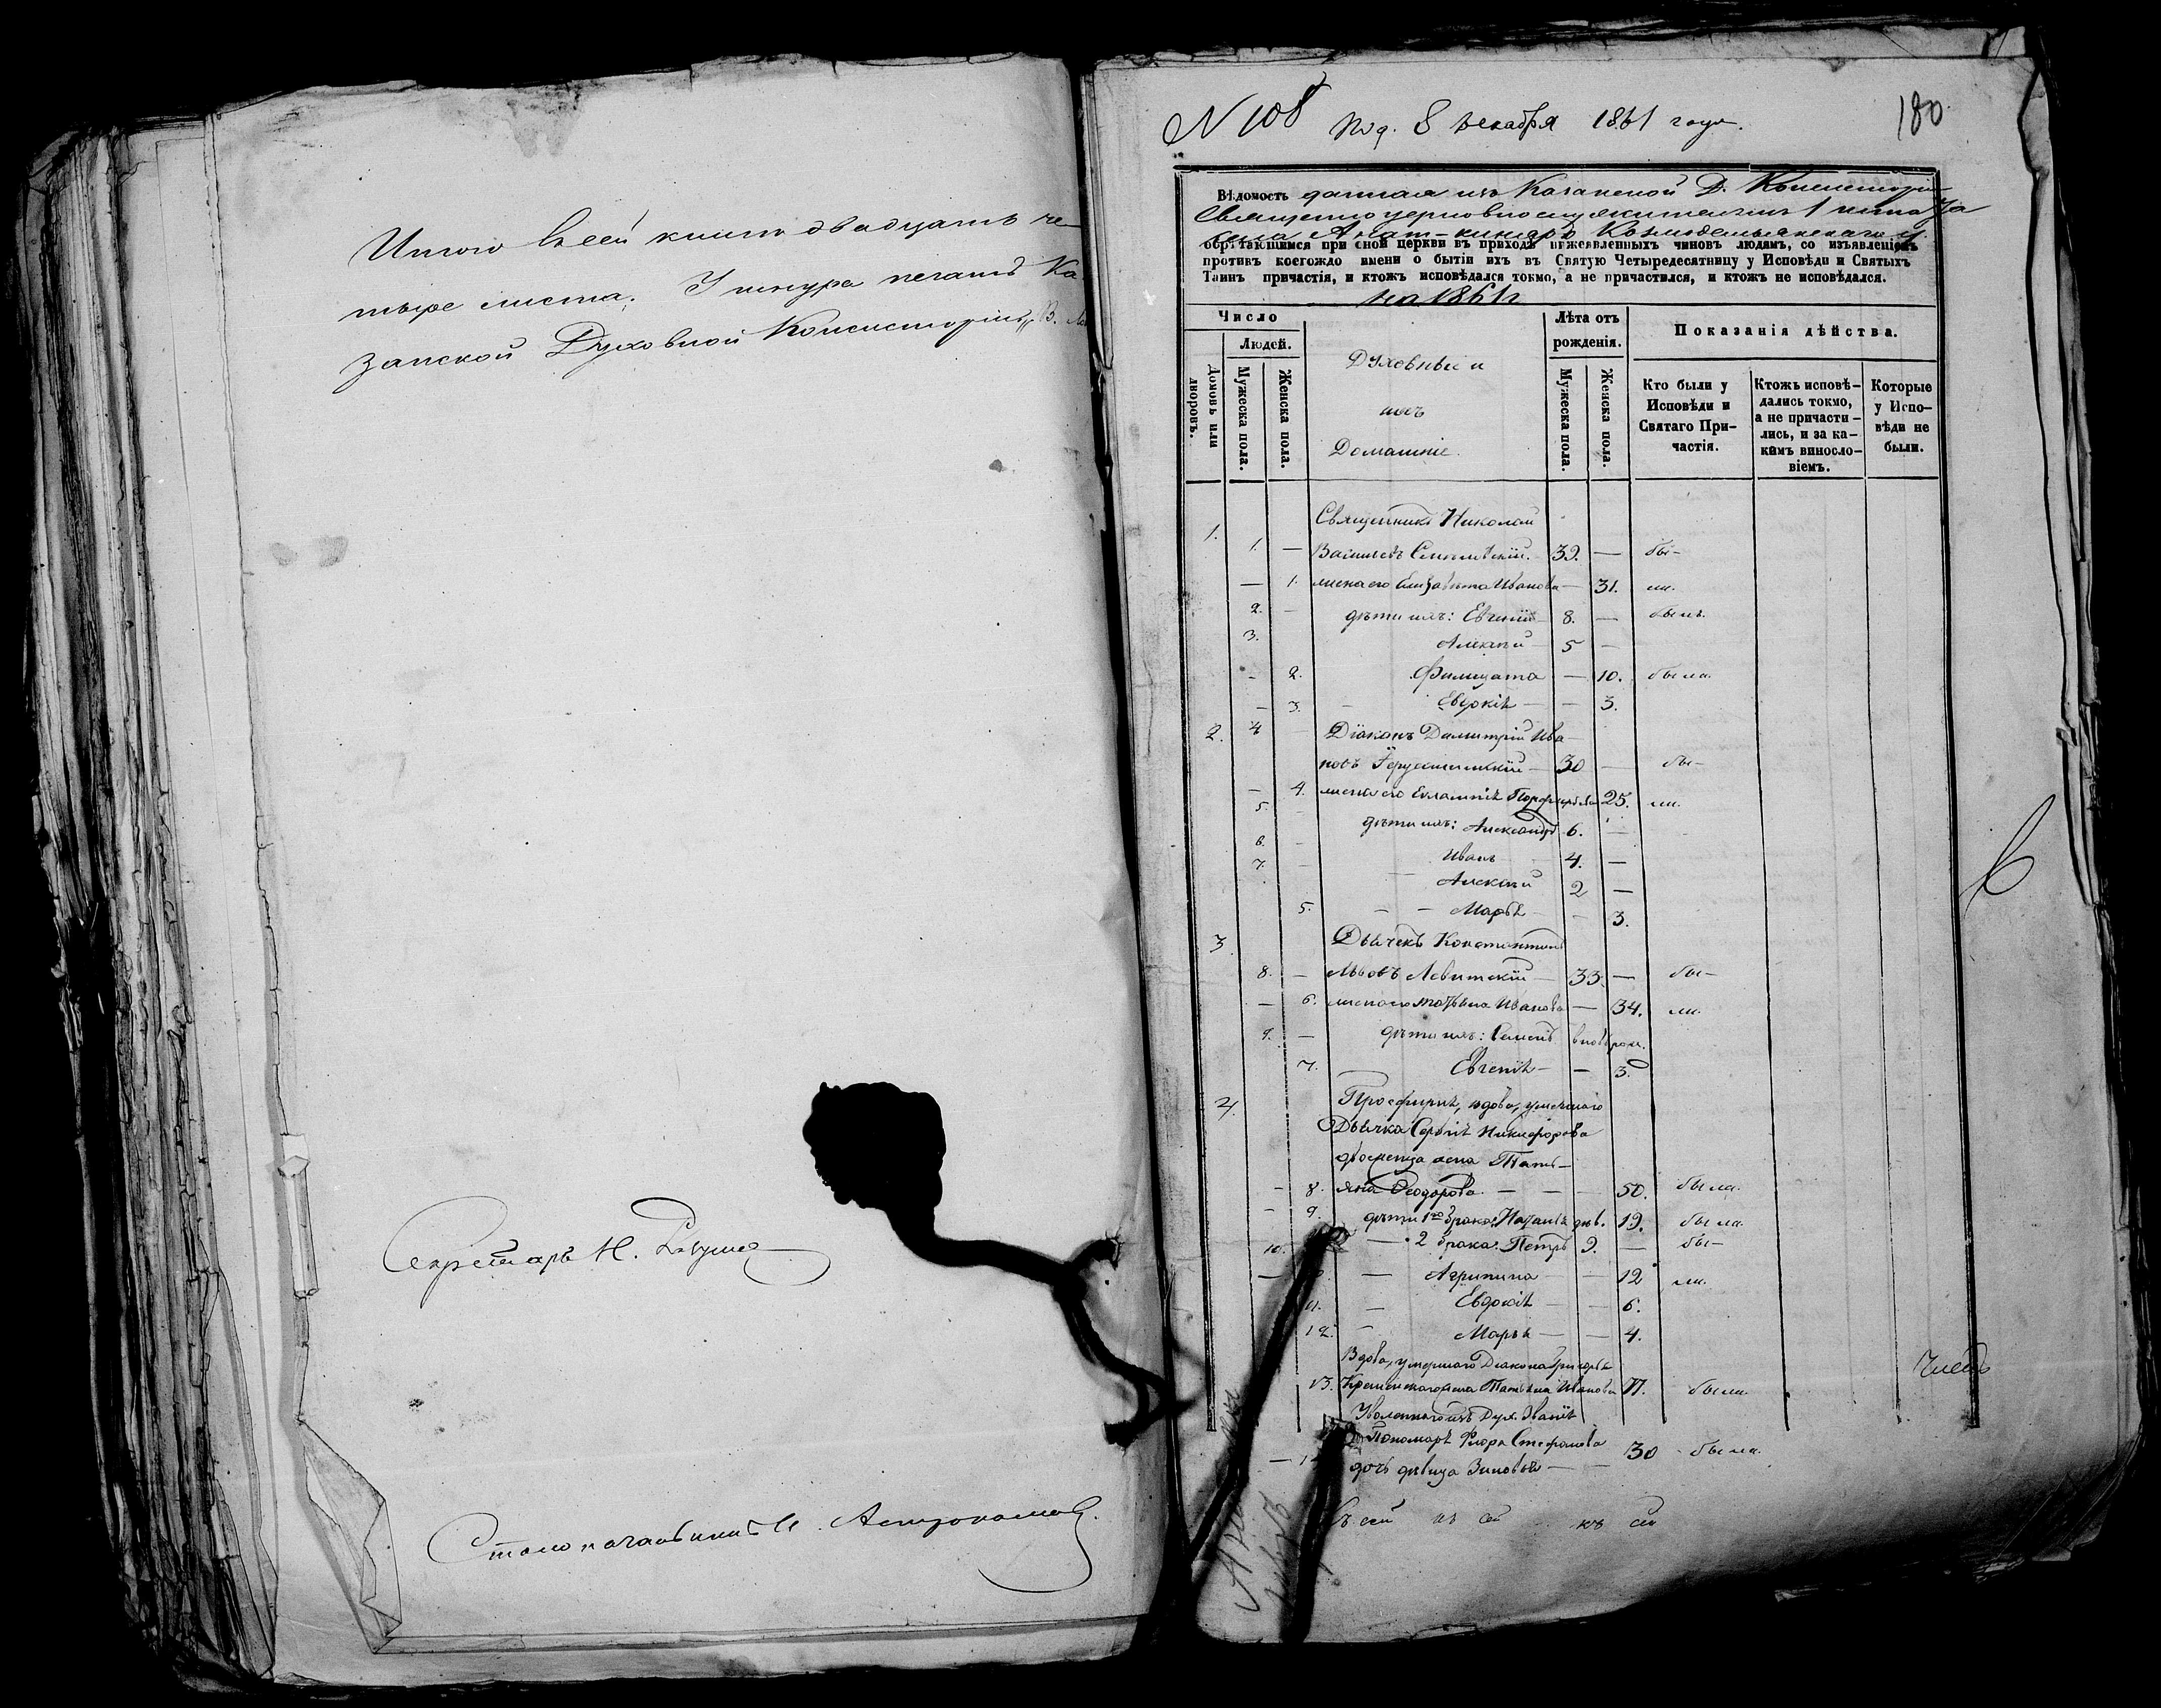 Итого в сей книги двадцать че-
тыре листа. У шнура печать Ка-
занской Духовной Консисторіи
Секретарь Н.
Столоначальникъ Астрономовъ.
N 108 Под. 8 декабря 1861 года.
180
Вѣдомость данная изъ Казанской Д. Консисторіи
Священноцерковнослужителямъ
села Козмодемьянскаго у.
обрѣтающимся при оной церкви въ приходѣ нижеявленныхъ чиновъ людямъ, со изъявленіемъ
противъ коегождо имени о бытіи ихъ въ Святую Четыредесятницу у Исповѣди и Святыхъ
Таинъ причастія, и ктожъ исповѣдался токмо, а не причастился, и ктожъ не исповѣдался.
на 1861 г
Число
Людей.
Домовъ или дворовъ.
Мужеска пола.
Женска пола.
Духовные и
ихъ
Домашніе.
Лѣта отъ рожденія.
Мужеска пола.
Женска пола.
Показанія дѣйства.
Кто были у Исповѣди и Святаго При-частія.
Ктожъ исповѣ-дались токмо, а не причасти-лись, и за ка-кимъ винословіемъ.
Которые у Испо-вѣди не были.
1. Священникъ Николай
1. — Васильевъ 39. — бы-
— 1. жена его Елизавета Иванова — 31. ли.
2. — дѣти ихъ: Евгеній 8. — былъ.
3. Алексѣй 5 —
- 2. Филицата — 10. была.
— 3. Евдокія — — 3.
2. 4 Діаконъ Димитрій Ива-
новъ Іерусалимскій — 30 — бы-
— 4. жена его Евлампія Порфирьева 25. ли.
5. дѣти ихъ: Александръ 6. —
6. Иванъ 4. —
7. Алексѣй 2 —
5. — — Марья — 3.
3 Дьячекъ Константинъ
8. — Львовъ Левитскій 33. — бы-
— 6. жена его Татьяна Иванова — 34. ли.
9. — дѣти ихъ: Семенъ
7. Евгенія — — 3.
4. Просфирня, вдова, умершаго
Дьячка Сергія Никифорова
жена Тать-
- 8. яна Ѳеодорова. — — — 50. была.
- 9. дѣти 1го брака: дѣв. 19. была.
10. — 2 брака: Петръ 9. — бы-
— — Агрипина — 12 ли.
11. — Евдокія — — 6.
12. — Марья — — 4.
Вдова, умершаго Діакона Григорья
13. жена Татьяна Иванова 71. была.
Уволеннаго изъ Дух. Званія
Пономаря Флора Стефанова
— дочь дѣвица Зиновья — — 30 была.